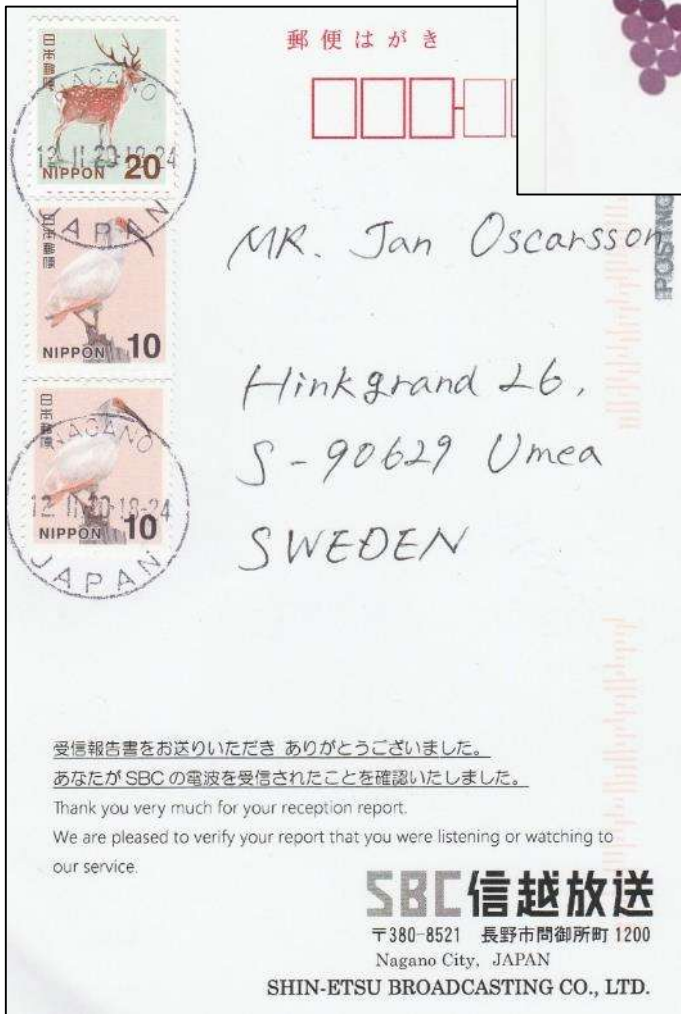 郵便はがき
日本郵便
NIPPON 20
NAGANO
12.11.20-18-24
JAPAN
日本郵便
NIPPON 10
日本郵便
NIPPON 10
NAGANO
12.11.20-18-24
JAPAN
POSTING
MR. Jan Oscarsson
Hinkgrand 26,
S-90629 Umea
SWEDEN
受信報告書をお送りいただき ありがとうございました。
あなたが SBC の電波を受信されたことを確認いたしました。
Thank you very much for your reception report.
We are pleased to verify your report that you were listening or watching to
our service.
SBC信越放送
〒380-8521 長野市問御所町 1200
Nagano City, JAPAN
SHIN-ETSU BROADCASTING CO., LTD.